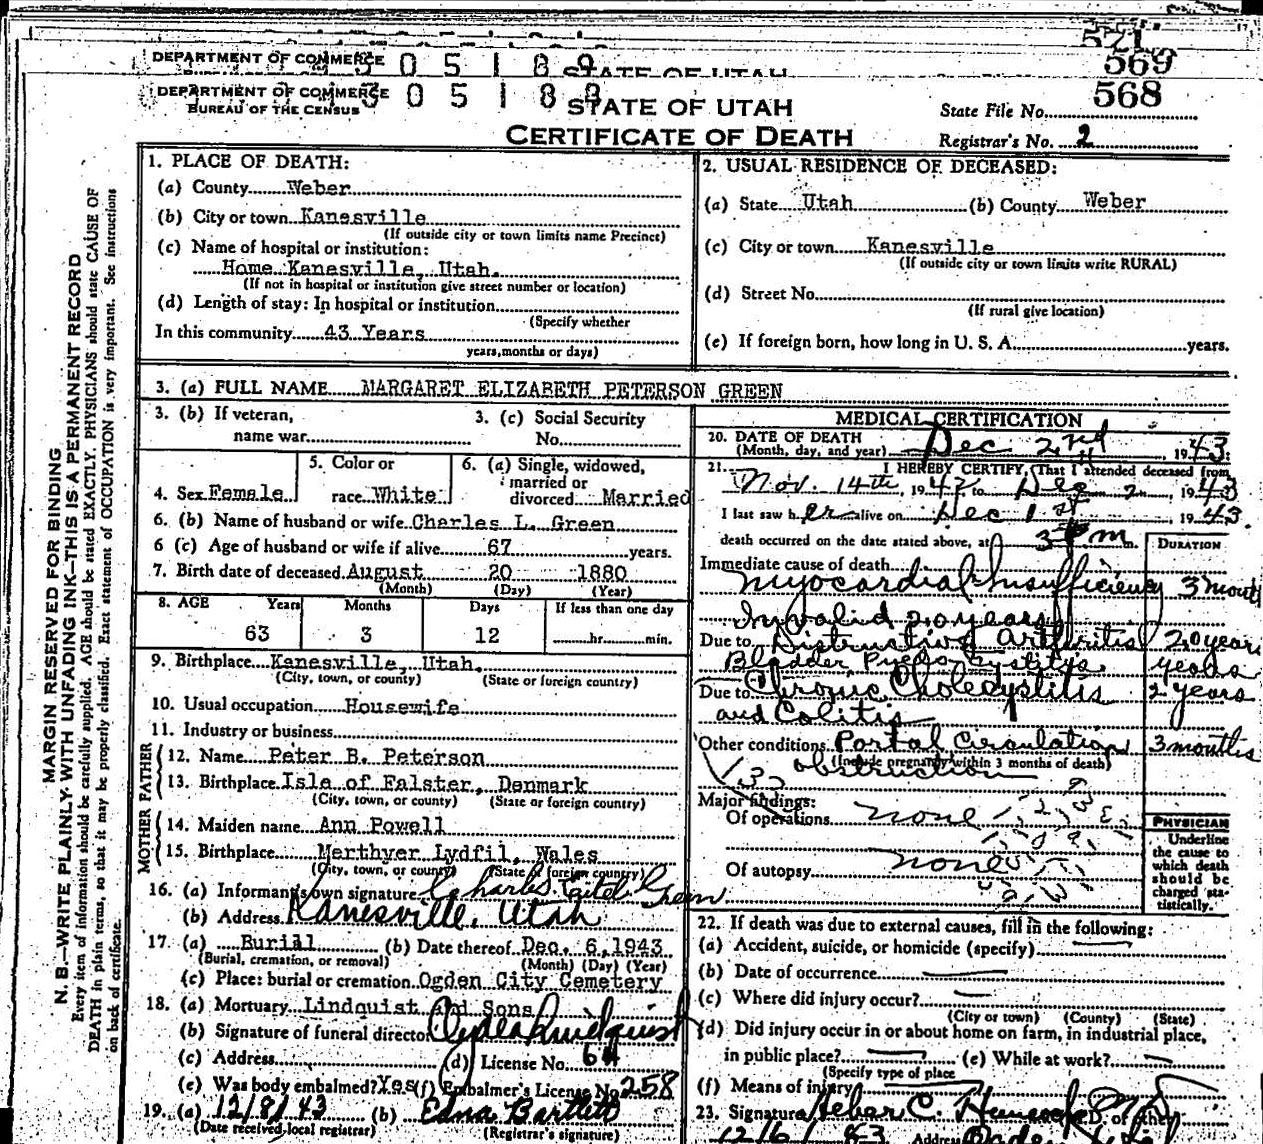 521
DEPARTMENT OF COMMERCE 3 0 5 1 8 9 STATE OF UTAH 569
DEPARTMENT OF COMMERCE 3 0 5 1 8 8
BUREAU OF THE CENSUS
STATE OF UTAH
CERTIFICATE OF DEATH
568
State File No.
Registrar's No. 2
MARGIN RESERVED FOR BINDING
N. B.—WRITE PLAINLY WITH UNFADING INK—THIS IS A PERMANENT RECORD
Every item of information should be carefully supplied. AGE should be stated EXACTLY. PHYSICIANS should state CAUSE OF
DEATH in plain terms, so that it may be properly classified. Exact statement of OCCUPATION is very important. See instructions
on back of certificate.
1. PLACE OF DEATH:
(a) County Weber
(b) City or town Kanesville
(If outside city or town limits name Precinct)
(c) Name of hospital or institution:
Home Kanesville, Utah.
(If not in hospital or institution give street number or location)
(d) Length of stay: In hospital or institution
(Specify whether
In this community 43 Years
years, months or days)
2. USUAL RESIDENCE OF DECEASED:
(a) State Utah (b) County Weber
(c) City or town Kanesville
(If outside city or town limits write RURAL)
(d) Street No.
(If rural give location)
(e) If foreign born, how long in U. S. A. years.
3. (a) FULL NAME MARGARET ELIZABETH PETERSON GREEN
3. (b) If veteran,
name war
3. (c) Social Security
No.
4. Sex Female
5. Color or
race White
6. (a) Single, widowed,
married or
divorced Married
6. (b) Name of husband or wife Charles L. Green
6 (c) Age of husband or wife if alive 67 years.
7. Birth date of deceased August 20 1880
(Month) (Day) (Year)
8. AGE Years Months Days If less than one day
63 3 12 hr. min.
9. Birthplace Kanesville, Utah.
(City, town, or county) (State or foreign country)
10. Usual occupation Housewife
11. Industry or business
FATHER
12. Name Peter B. Peterson
13. Birthplace Isle of Falster, Denmark
(City, town, or county) (State or foreign country)
MOTHER
14. Maiden name Ann Powell
15. Birthplace Merthyer Lydfil, Wales
(City, town, or county) (State or foreign country)
16. (a) Informant's own signature Charles Green
(b) Address Kanesville, Utah
17. (a) Burial (b) Date thereof Dec. 6, 1943
(Burial, cremation, or removal) (Month) (Day) (Year)
(c) Place: burial or cremation Ogden City Cemetery
18. (a) Mortuary Lindquist and Sons
(b) Signature of funeral director Clyde Lindquist
(c) Address (d) License No. 64
(e) Was body embalmed? Yes (f) Embalmer's License No. 258
19. (a) 12/8/43 (b) Edna Bartlett
(Date received local registrar) (Registrar's signature)
MEDICAL CERTIFICATION
20. DATE OF DEATH
(Month, day, and year) Dec 2nd, 1943.
21. I HEREBY CERTIFY, That I attended deceased from
Nov. 14th, 1942 to Dec 2, 1943
I last saw her alive on Dec 1st, 1943.
death occurred on the date stated above, at 3 P m.
DURATION
Immediate cause of death
Myocardial Insufficiency 3 month
Invalid 20 years
Due to Distructive arthritis 20 year
Bladder Pyelo Cystitys years
Due to Chronic Choledystitis 2 years
and Colitis
Other conditions Portal Circulation 3 months
(Include pregnancy within 3 months of death)
obstruction
Major findings:
Of operations none
Of autopsy none
PHYSICIAN
Underline
the cause to
which death
should be
charged sta-
tistically.
22. If death was due to external causes, fill in the following:
(a) Accident, suicide, or homicide (specify)
(b) Date of occurrence
(c) Where did injury occur?
(City or town) (County) (State)
(d) Did injury occur in or about home on farm, in industrial place,
in public place? (e) While at work?
(Specify type of place
(f) Means of injury
23. Signature Heber C. Hancock M.D. or other
12/6/ 43 Address Ogden